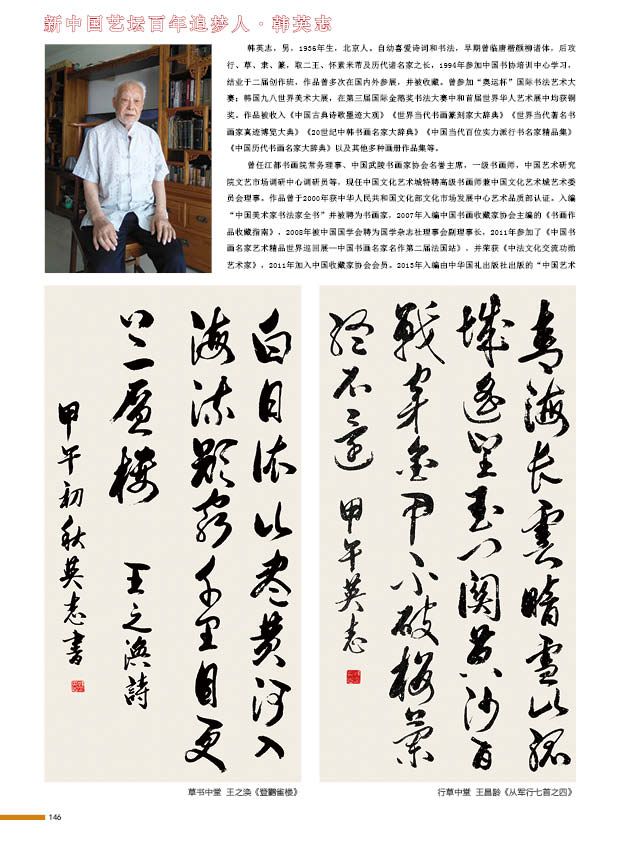 新中国艺坛百年追梦人·韩英志
韩英志，男，1936年生，北京人。自幼喜爱诗词和书法，早期曾临唐楷颜柳诸体，后攻
行、草、隶、篆，取二王、怀素米芾及历代诸名家之长，1994年参加中国书协培训中心学习，
结业于二届创作班，作品曾多次在国内外参展，并被收藏。曾参加“奥运杯”国际书法艺术大
赛；韩国九八世界美术大展，在第三届国际金鹅奖书法大赛中和首届世界华人艺术展中均获铜
奖。作品被收入《中国古典诗歌墨迹大观》《世界当代书画篆刻家大辞典》《世界当代著名书
画家真迹博览大典》《20世纪中韩书画名家大辞典》《中国当代百位实力派行书名家精品集》
《中国历代书画名家大辞典》以及其他多种画册作品集等。
曾任江都书画院常务理事、中国武陵书画家协会名誉主席，一级书画师，中国艺术研究
院文艺市场调研中心调研员等，现任中国文化艺术城特聘高级书画师兼中国文化艺术城艺术委
员会理事。作品曾于2000年获中华人民共和国文化部文化市场发展中心艺术品质部认证。入编
“中国美术家书法家全书”并被聘为书画家，2007年入编中国书画收藏家协会主编的《书画作
品收藏指南》，2008年被中国国学会聘为国学杂志社理事会副理事长，2011年参加了《中国书
画名家艺术精品世界巡回展—中国书画名家名作第二届法国站》，并荣获《中法文化交流功勋
艺术家》，2011年加入中国收藏家协会会员。2015年入编由中华国礼出版社出版的“中国艺术
青海长云暗雪山孤
城遥望玉门关黄沙百
战穿金甲不破楼兰
终不还 甲午英志
白日依山尽黄河入
海流欲穷千里目更
上一层楼 王之渙詩
甲午初秋英志書
草书中堂 王之涣《登鹳雀楼》
行草中堂 王昌龄《从军行七首之四》
146